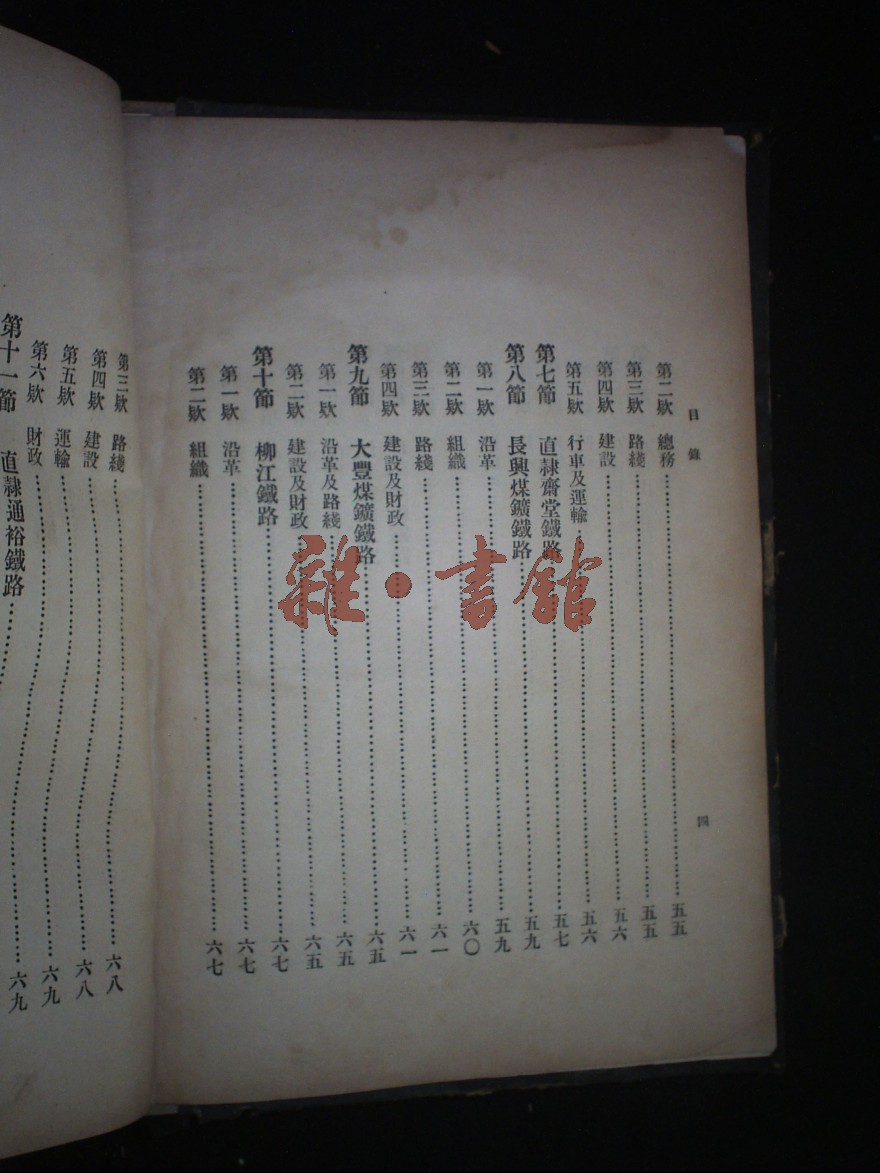 目錄 四
第二欵 總務……五五
第三欵 路綫……五五
第四欵 建設……五六
第五欵 行車及運輸……五六
第七節 直隸齋堂鐵路……五七
第八節 長興煤鑛鐵路……五九
第一欵 沿革……五九
第二欵 組織……六〇
第三欵 路綫……六一
第四欵 建設及財政……六一
第九節 大豐煤鑛鐵路……六五
第一欵 沿革及路綫……六五
第二欵 建設及財政……六五
第十節 柳江鐵路……六七
第一欵 沿革……六七
第二欵 組織……六七
第三欵 路綫……六八
第四欵 建設……六八
第五欵 運輸……六九
第六欵 財政……六九
第十一節 直隸通裕鐵路……
雜·書舘